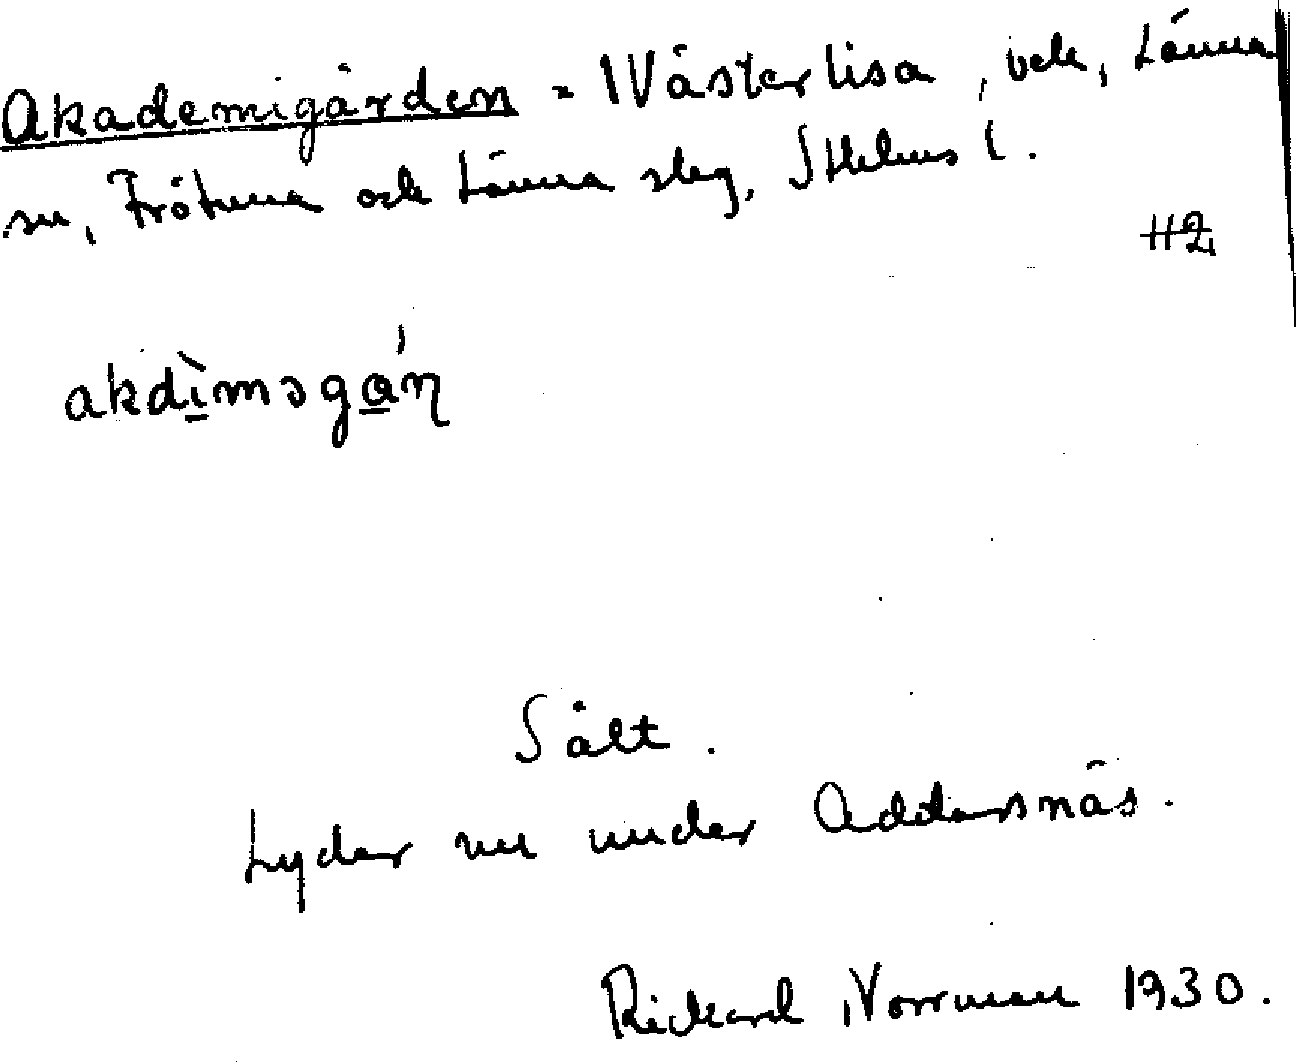 Akademigården = Västerlisa, beb., Länna
sn, Frötuna och Länna slag, Sthlms l.
H2
akdìməgɑ́ṇ
Sålt.
Lyder nu under Addarsnäs.
Rickard Norrman 1930.